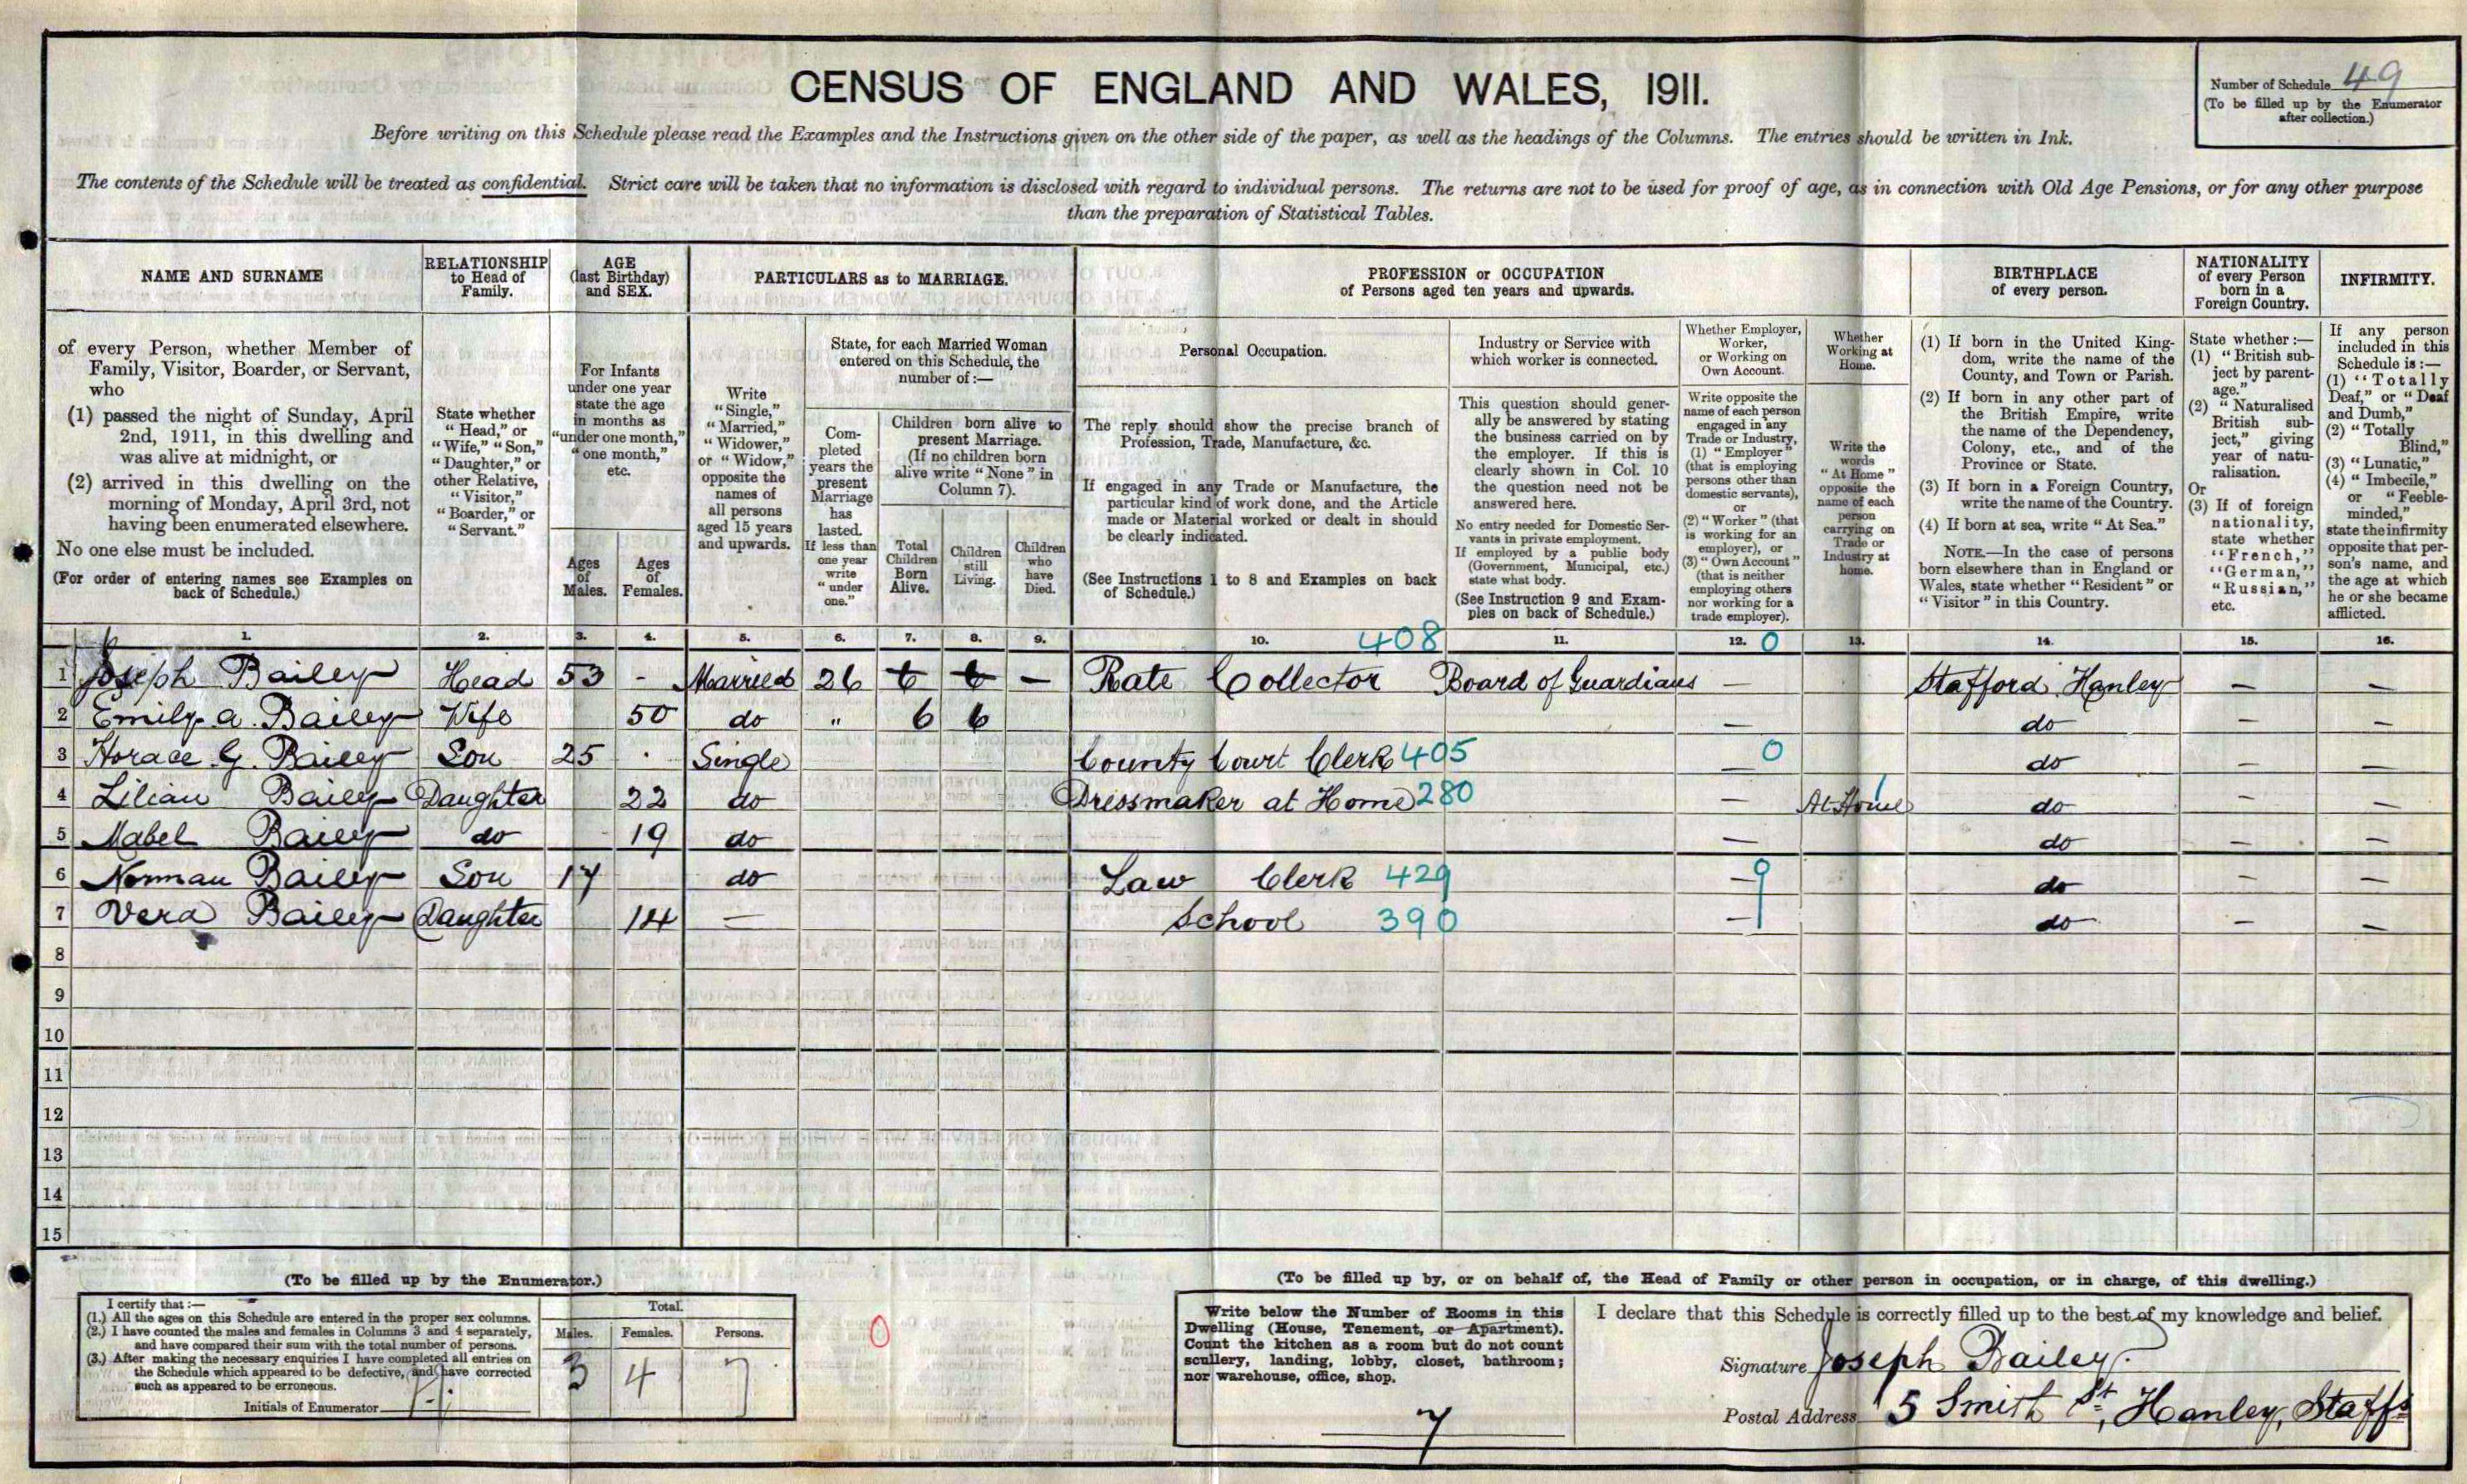 CENSUS OF ENGLAND AND WALES, 1911.
Number of Schedule 49
(To be filled up by the Enumerator
after collection.)
Before writing on this Schedule please read the Examples and the Instructions given on the other side of the paper, as well as the headings of the Columns. The entries should be written in Ink.
The contents of the Schedule will be treated as confidential. Strict care will be taken that no information is disclosed with regard to individual persons. The returns are not to be used for proof of age, as in connection with Old Age Pensions, or for any other purpose
than the preparation of Statistical Tables.
NAME AND SURNAME
of every Person, whether Member of
Family, Visitor, Boarder, or Servant,
who
(1) passed the night of Sunday, April
2nd, 1911, in this dwelling and
was alive at midnight, or
(2) arrived in this dwelling on the
morning of Monday, April 3rd, not
having been enumerated elsewhere.
No one else must be included.
(For order of entering names see Examples on
back of Schedule.)
RELATIONSHIP
to Head of
Family.
State whether
"Head," or
"Wife," "Son,"
"Daughter," or
other Relative,
"Visitor,"
"Boarder," or
"Servant."
AGE
(last Birthday)
and SEX.
For Infants
under one year
state the age
in months as
"under one month,"
"one month,"
etc.
Ages
of
Males.
Ages
of
Females.
PARTICULARS as to MARRIAGE.
Write
"Single,"
"Married,"
"Widower,"
or "Widow,"
opposite the
names of
all persons
aged 15 years
and upwards.
State, for each Married Woman
entered on this Schedule, the
number of:—
Com-
pleted
years the
present
Marriage
has
lasted.
If less than
one year
write
"under
one."
Children born alive to
present Marriage.
(If no children born
alive write "None" in
Column 7).
Total
Children
Born
Alive.
Children
still
Living.
Children
who
have
Died.
PROFESSION or OCCUPATION
of Persons aged ten years and upwards.
Personal Occupation.
The reply should show the precise branch of
Profession, Trade, Manufacture, &c.
If engaged in any Trade or Manufacture, the
particular kind of work done, and the Article
made or Material worked or dealt in should
be clearly indicated.
(See Instructions 1 to 8 and Examples on back
of Schedule.)
Industry or Service with
which worker is connected.
This question should gener-
ally be answered by stating
the business carried on by
the employer. If this is
clearly shown in Col. 10
the question need not be
answered here.
No entry needed for Domestic Ser-
vants in private employment.
If employed by a public body
(Government, Municipal, etc.)
state what body.
(See Instruction 9 and Exam-
ples on back of Schedule.)
Whether Employer,
Worker,
or Working on
Own Account.
Write opposite the
name of each person
engaged in any
Trade or Industry,
(1) "Employer"
(that is employing
persons other than
domestic servants),
or
(2) "Worker" (that
is working for an
employer), or
(3) "Own Account"
(that is neither
employing others
nor working for a
trade employer).
Whether
Working at
Home.
Write the
words
"At Home"
opposite the
name of each
person
carrying on
Trade or
Industry at
home.
BIRTHPLACE
of every person.
(1) If born in the United King-
dom, write the name of the
County, and Town or Parish.
(2) If born in any other part of
the British Empire, write
the name of the Dependency,
Colony, etc., and of the
Province or State.
(3) If born in a Foreign Country,
write the name of the Country.
(4) If born at sea, write "At Sea."
NOTE.—In the case of persons
born elsewhere than in England or
Wales, state whether "Resident" or
"Visitor" in this Country.
NATIONALITY
of every Person
born in a
Foreign Country.
State whether:—
(1) "British sub-
ject by parent-
age."
(2) "Naturalised
British sub-
ject," giving
year of natu-
ralisation.
Or
(3) If of foreign
nationality,
state whether
"French,"
"German,"
"Russian,"
etc.
INFIRMITY.
If any person
included in this
Schedule is:—
(1) "Totally
Deaf," or "Deaf
and Dumb,"
(2) "Totally
Blind,"
(3) "Lunatic,"
(4) "Imbecile,"
or "Feeble-
minded,"
state the infirmity
opposite that per-
son's name, and
the age at which
he or she became
afflicted.
1. 2. 3. 4. 5. 6. 7. 8. 9. 10. 408 11. 12. 0 13. 14. 15. 16.
1 Joseph Bailey Head 53 - Married 26 6 6 — Rate Collector Board of Guardians — Stafford Hanley — —
2 Emily A. Bailey Wife 50 do " 6 6 — do — —
3 Horace G. Bailey Son 25 . Single County Court Clerk 405 — 0 do — —
4 Lilian Bailey Daughter 22 do Dressmaker at Home 280 — At Home 1 do — —
5 Mabel Bailey do 19 do — do — —
6 Norman Bailey Son 17 do Law Clerk 429 — 9 do — —
7 Vera Bailey Daughter 14 — School 390 — do — —
8
9
10
11
12
13
14
15
(To be filled up by the Enumerator.)
I certify that:—
(1.) All the ages on this Schedule are entered in the proper sex columns.
(2.) I have counted the males and females in Columns 3 and 4 separately,
and have compared their sum with the total number of persons.
(3.) After making the necessary enquiries I have completed all entries on
the Schedule which appeared to be defective, and have corrected
such as appeared to be erroneous.
Initials of Enumerator
Total.
Males. Females. Persons.
3 4 7
0
(To be filled up by, or on behalf of, the Head of Family or other person in occupation, or in charge, of this dwelling.)
Write below the Number of Rooms in this
Dwelling (House, Tenement, or Apartment).
Count the kitchen as a room but do not count
scullery, landing, lobby, closet, bathroom;
nor warehouse, office, shop.
7
I declare that this Schedule is correctly filled up to the best of my knowledge and belief.
Signature Joseph Bailey.
Postal Address 5 Smith St, Hanley, Staffs